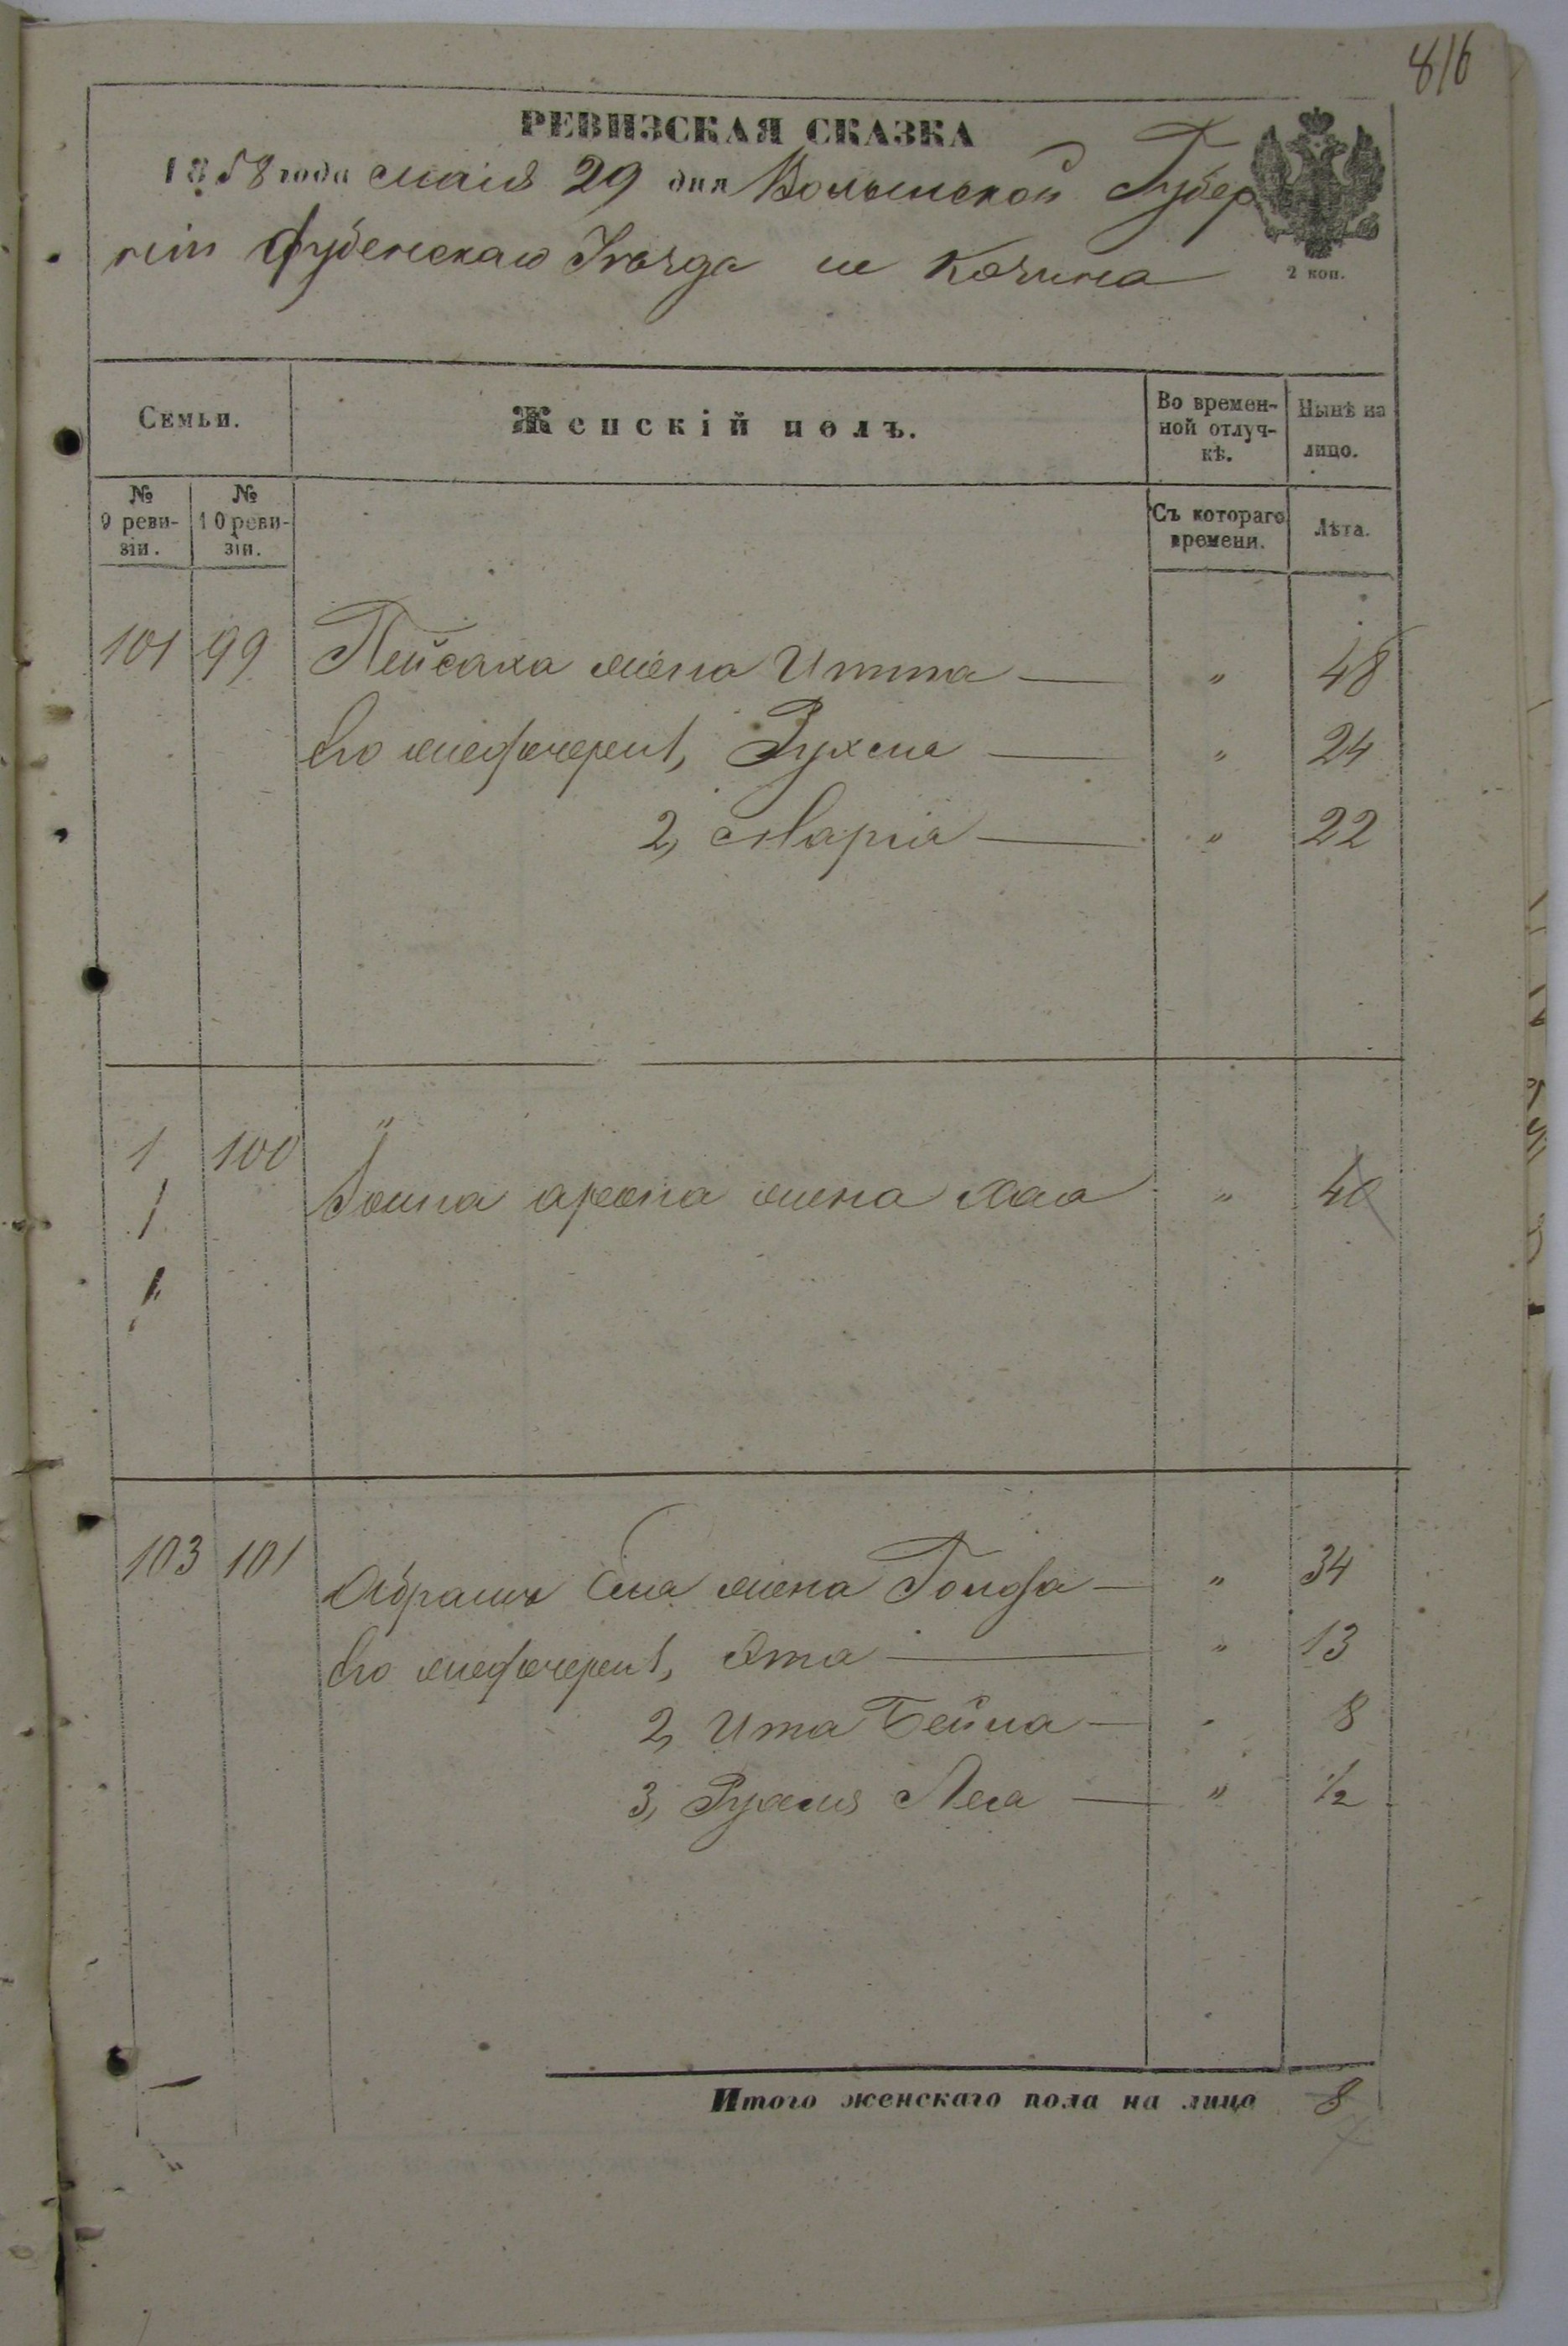 816
РЕВИЗСКАЯ СКАЗКА
1858 года маія 29 дня Волынской Губер
ніи Дубенскаго Уѣзда м Козина
2 коп.
Семьи.
Женскій полъ.
Во времен-
ной отлуч-
кѣ.
Нынѣ на
лицо.
№
9 реви-
зіи.
№
10 реви-
зіи.
Съ котораго
времени.
Лѣта.
101 99 Пейсаха жена Итта — " 48
Его жедочери 1, Рухля — " 24
2, Марія — " 22
1 100 "
1 арона жена Хая " 40
1
103 101 Абрамъ жена Голда — " 34
Его жедочери 1, Эта — " 13
2, Ита Бейла — " 8
3, Рухля Лея — " 1/2
Итого женскаго пола на лицо 8
7